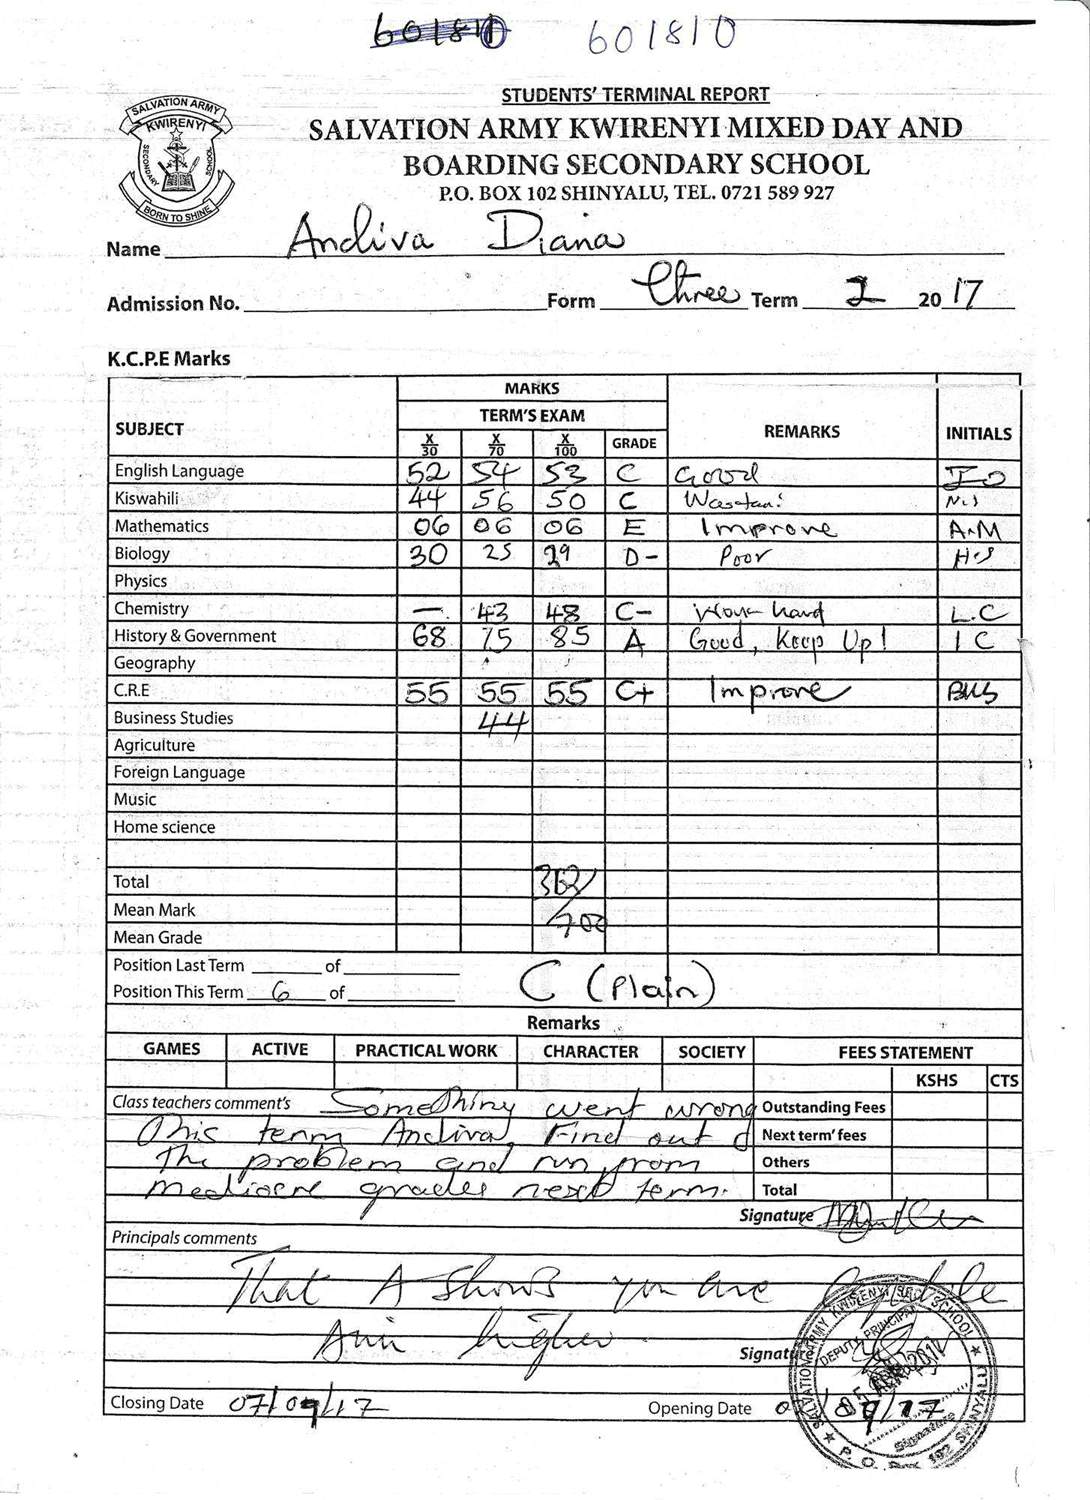 601810
601810
STUDENTS' TERMINAL REPORT
SALVATION ARMY
KWIRENYI
SECONDARY SCHOOL
BORN TO SHINE
SALVATION ARMY KWIRENYI MIXED DAY AND
BOARDING SECONDARY SCHOOL
P.O. BOX 102 SHINYALU, TEL. 0721 589 927
Name Andiva Diana
Admission No. Form Three Term 2 2017
K.C.P.E Marks
SUBJECT MARKS REMARKS INITIALS
TERM'S EXAM
X/30 X/70 X/100 GRADE
English Language 52 54 53 C Good J.O
Kiswahili 44 56 50 C Wastani N.S
Mathematics 06 06 06 E Improve A.M
Biology 30 25 29 D- Poor H.S
Physics
Chemistry — 43 48 C- Work hard L.C
History & Government 68 75 85 A Good, Keep Up! I C
Geography
C.R.E 55 55 55 C+ Improve
Business Studies 44
Agriculture
Foreign Language
Music
Home science
Total 362/
Mean Mark 700
Mean Grade
Position Last Term of
Position This Term 6 of C (Plain)
Remarks
GAMES ACTIVE PRACTICAL WORK CHARACTER SOCIETY FEES STATEMENT
KSHS CTS
Class teachers comment's Something went wrong Outstanding Fees
This term Andiva. Find out Next term' fees
The problem and run from Others
mediocre grades next term. Total
Signature
Principals comments
That A shows you are
Aim higher.
Signature
SALVATION ARMY KWIRENYI SEC. SCHOOL
DEPUTY PRINCIPAL
Signature
P. O. Box 102 SHINYALU
Closing Date 07/09/17 Opening Date